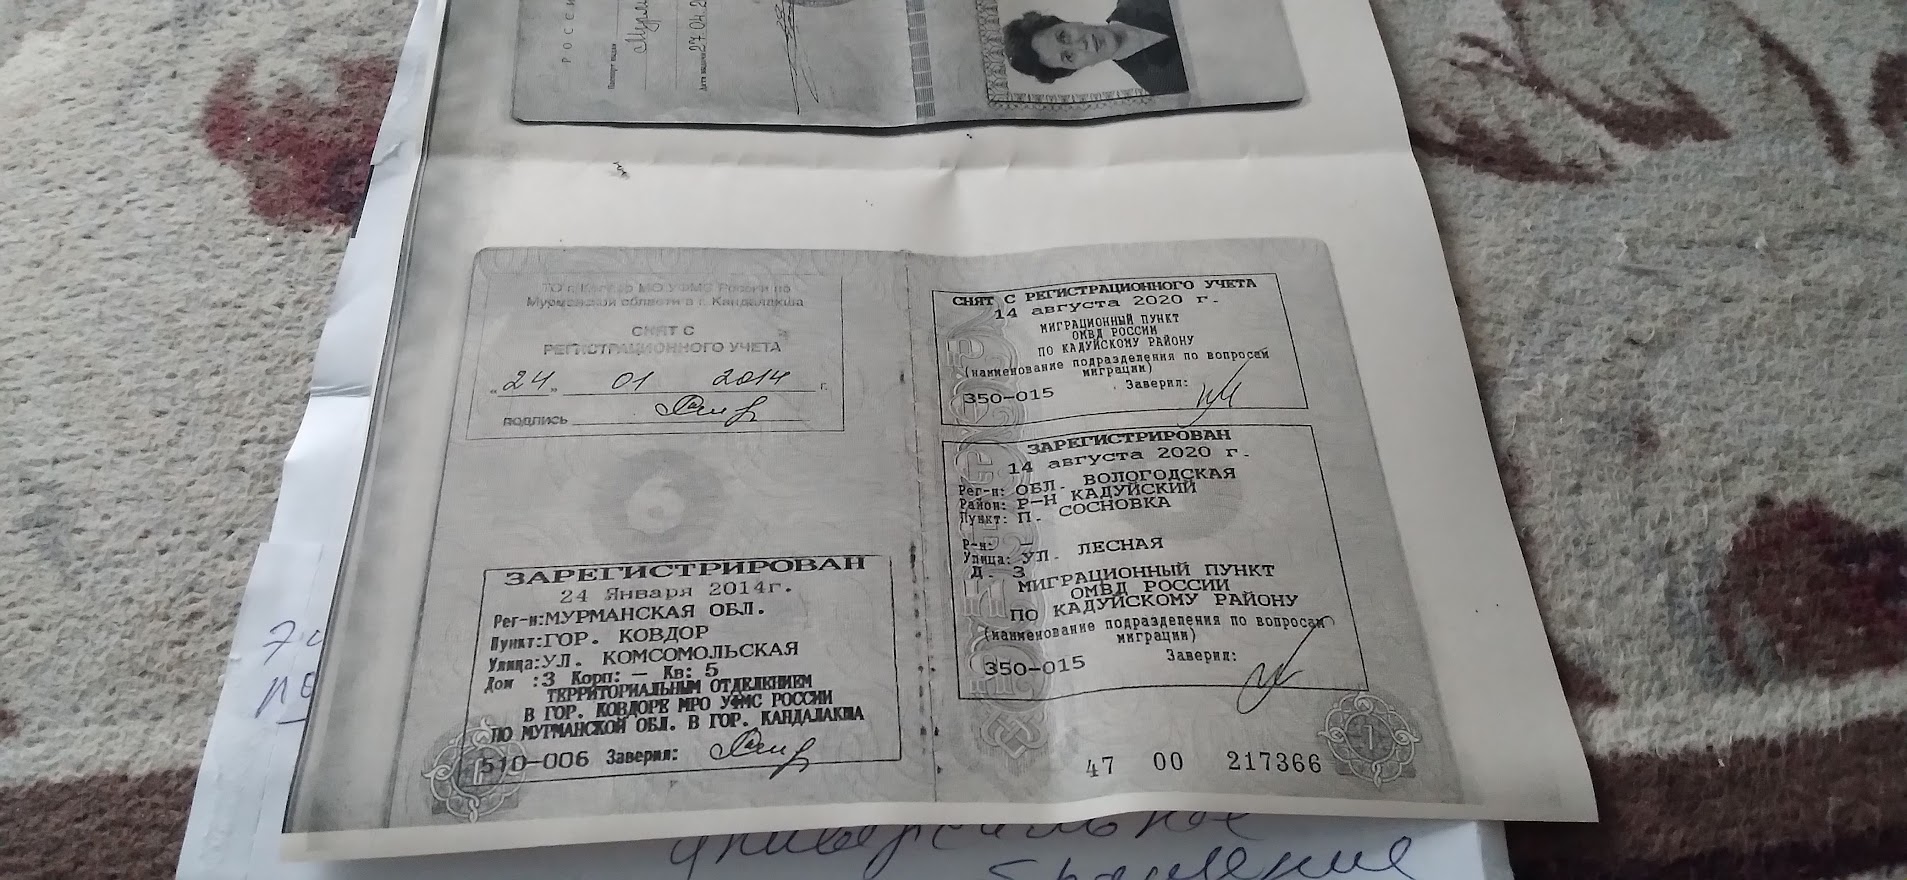 РОССИ
Паспорт выдан
Мурм
Дата выдачи 27.04.2
ТО в г. Ковдор МО УФМС России по
Мурманской области в г. Кандалакша
СНЯТ С
РЕГИСТРАЦИОННОГО УЧЕТА
"24" 01 2014 г.
ПОДПИСЬ
6
ЗАРЕГИСТРИРОВАН
24 Января 2014г.
Рег-н:МУРМАНСКАЯ ОБЛ.
Пункт:ГОР. КОВДОР
Улица:УЛ. КОМСОМОЛЬСКАЯ
Дом :3 Корп: — Кв: 5
ТЕРРИТОРИАЛЬНЫМ ОТДЕЛЕНИЕМ
В ГОР. КОВДОРЕ МРО УФМС РОССИИ
ПО МУРМАНСКОЙ ОБЛ. В ГОР. КАНДАЛАКША
510-006 Заверил:
СНЯТ С РЕГИСТРАЦИОННОГО УЧЕТА
14 августа 2020 г.
МИГРАЦИОННЫЙ ПУНКТ
ОМВД РОССИИ
ПО КАДУЙСКОМУ РАЙОНУ
(наименование подразделения по вопросам
миграции)
350-015 Заверил:
ЗАРЕГИСТРИРОВАН
14 августа 2020 г.
Рег-н: ОБЛ. ВОЛОГОДСКАЯ
Район: Р-Н КАДУЙСКИЙ
Пункт: П. СОСНОВКА
Р-н: —
Улица: УЛ. ЛЕСНАЯ
Д. 3
МИГРАЦИОННЫЙ ПУНКТ
ОМВД РОССИИ
ПО КАДУЙСКОМУ РАЙОНУ
(наименование подразделения по вопросам
миграции)
350-015 Заверил:
47 00 217366
7